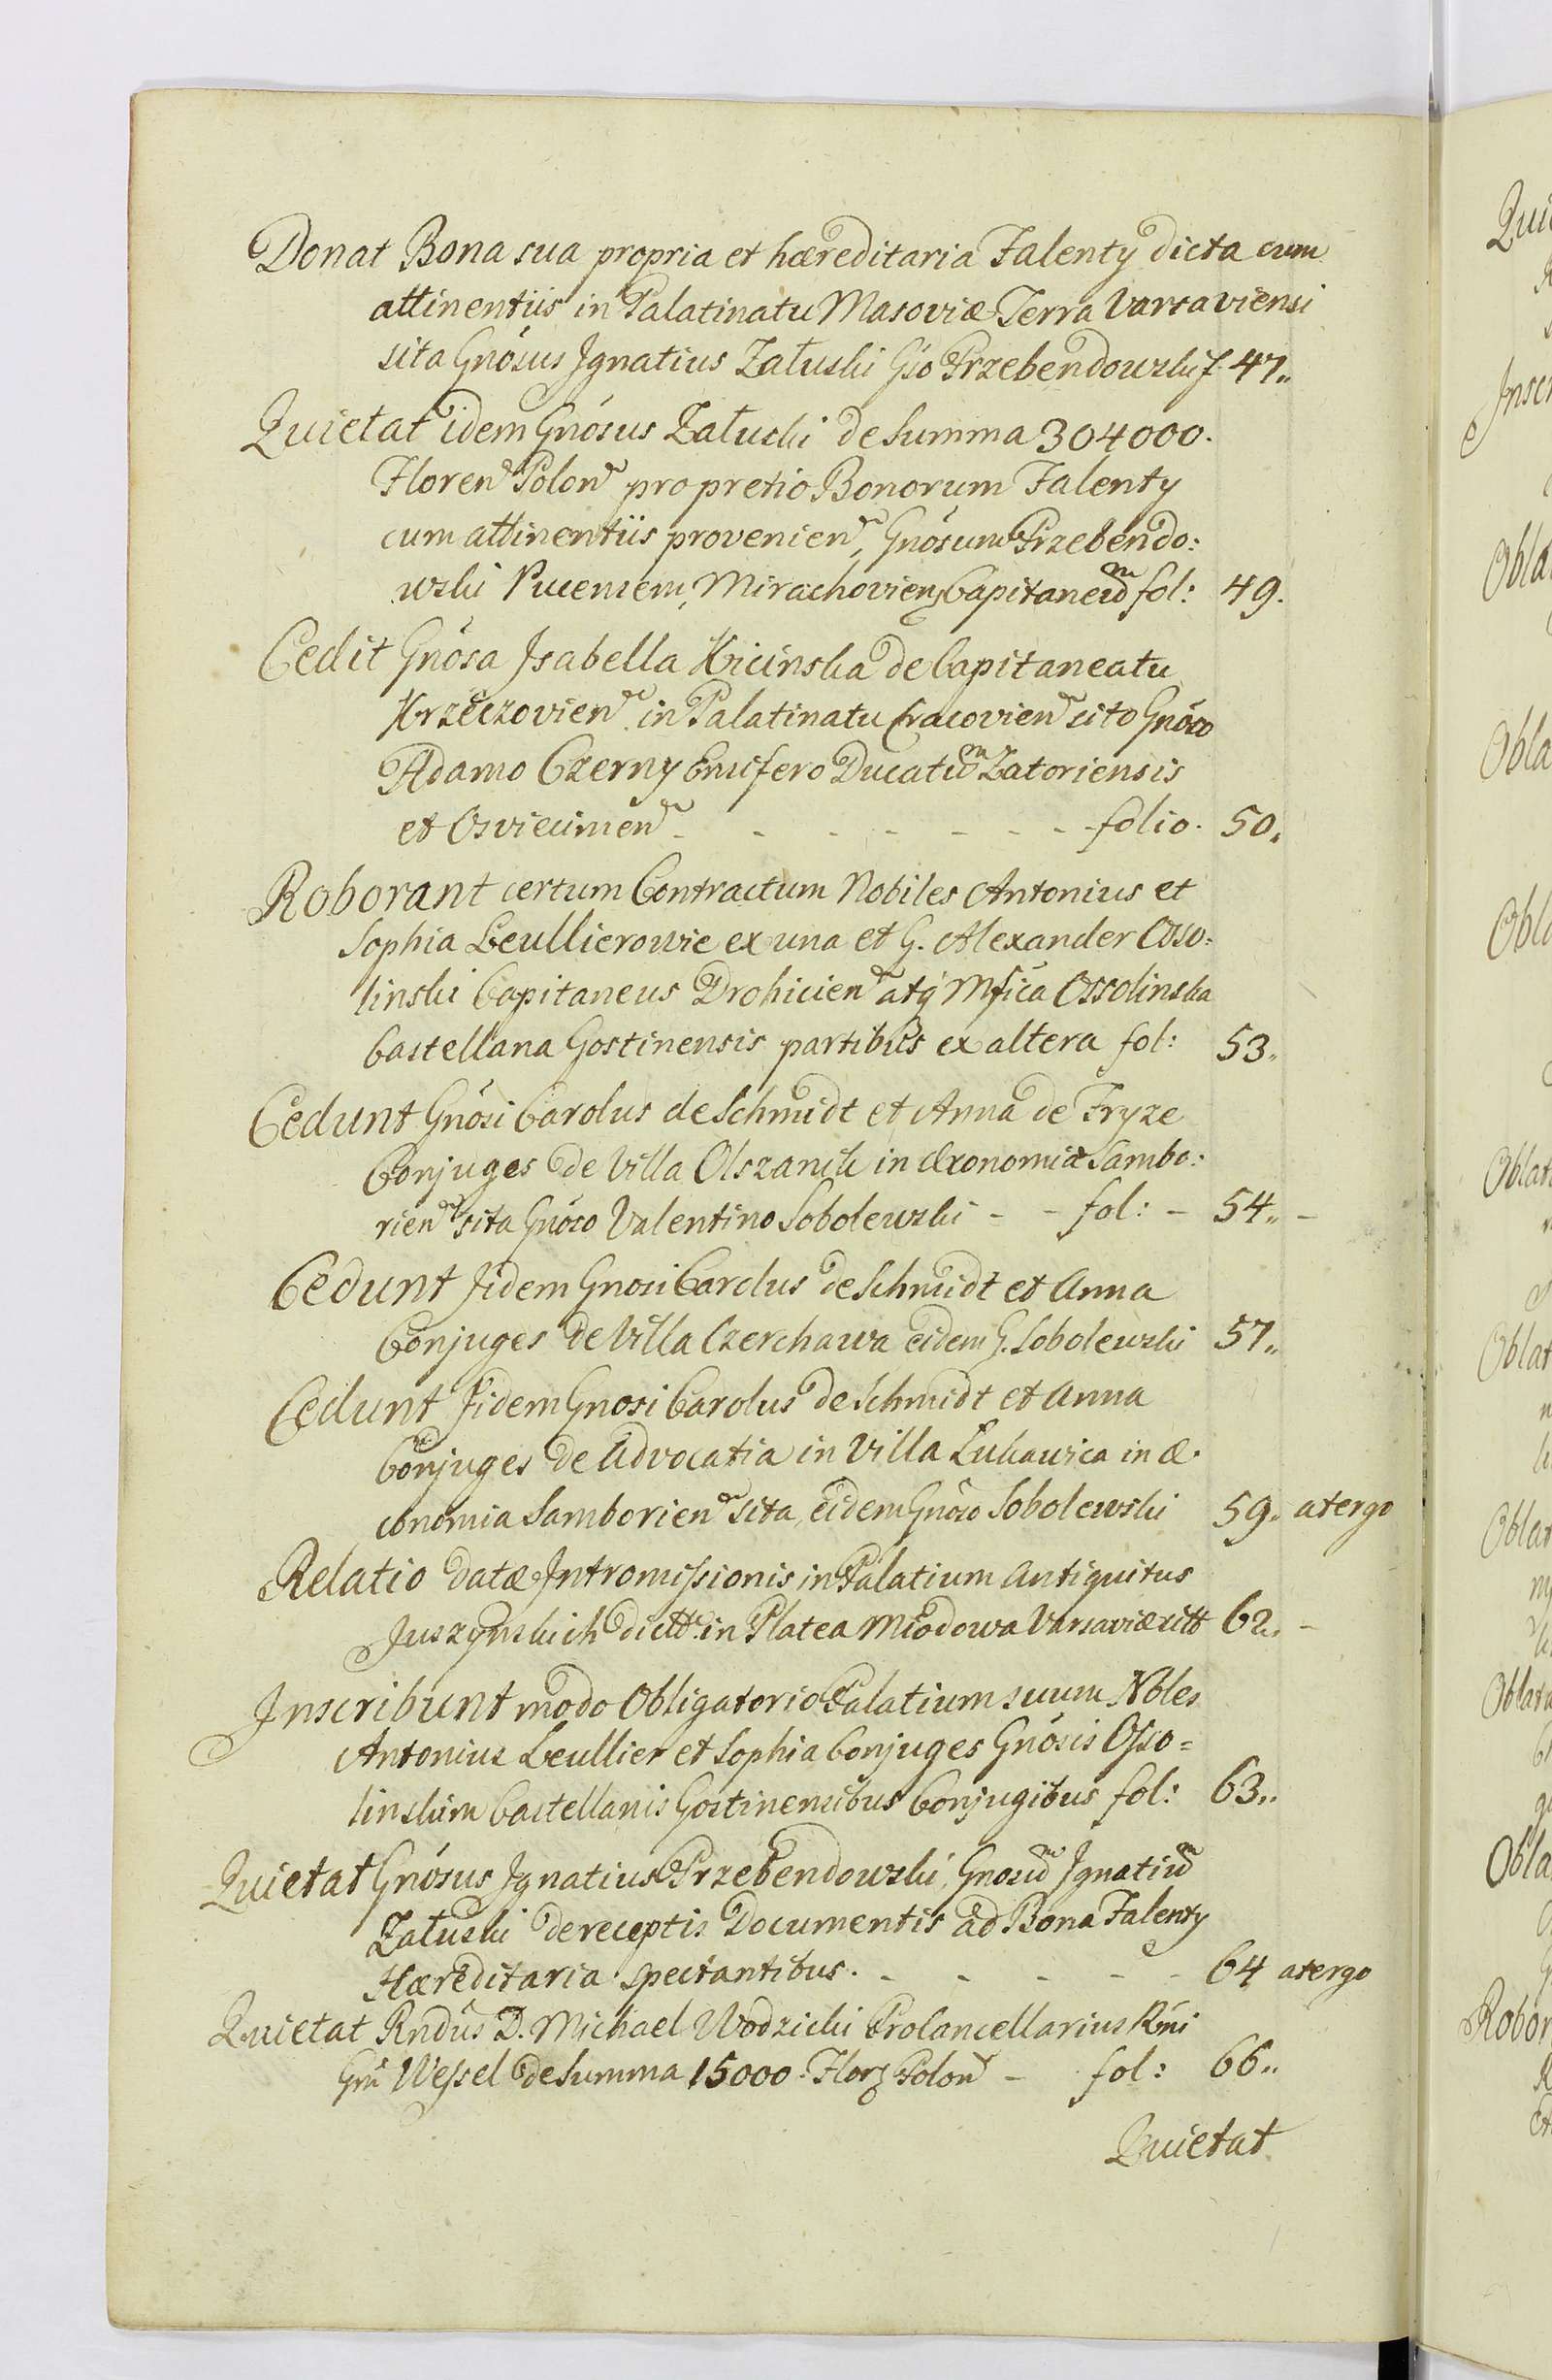 Donat Bona sua propria et hæreditaria Falenty dicta cum
attinentiis in Palatinatu Masoviæ Terra Varsaviensi
sita Gnosus Ignatius Załuski Gso Przebendowski f. 47„
Quietat idem Gnosus Załuski de Summa 304000.
Floren Polon pro pretio Bonorum Falenty
cum attinentiis provenien, Gnosum Przebendo:
wski Pucensem, Mirachovien Capitaneum fol: 49.
Cedit Gnosa Isabella Kicinska de Capitaneatu
Krzeczovien in Palatinatu Cracovien sito Gnoso
Adamo Czerny Ensifero Ducatum Zatoriensis
et Osviecimen - - - - - - - folio. 50„
Roborant certum Contractum Nobiles Antonius et
Sophia Leullierowie ex una et G. Alexander Osso:
linski Capitaneus Drohicien atq Mfica Ossolinska
Castellana Gostinensis partibus ex altera fol: 53„
Cedunt Gnosi Carolus de Schmidt et Anna de Fryze
Conjuges de Villa Olszanik in Œconomia Sambo:
rien sita Gnoso Valentino Sobolewski - - fol: - 54„ -
Cedunt Iidem Gnosi Carolus de Schmidt et Anna
Conjuges de Villa Czerchawa eidem G. Sobolewski 57„
Cedunt Iidem Gnosi Carolus de Schmidt et Anna
Conjuges de Advocatia in Villa Łukawica in œ.
conomia Samborien sita, eidem Gnoso Sobolewski 59„ atergo
Relatio datæ Intromissionis in Palatium Antiquitus
Juszynskich dictt: in Platea Miodowa Varsaviæ sitt 62„ -
Inscribunt modo Obligatorio Palatium suum Nbles
Antonius Leullier et Sophia Conjuges Gnosis Osso=
linskim Castellanis Gostinensibus Conjugibus fol: 63„
Quietat Gnosus Ignatius Przebendowski, Gnosum Ignatium
Załuski de receptis Documentis ad Bona Falenty
Hæreditaria spectantibus. - - - - - 64 atergo
Quietat Rndus D. Michael Wodzicki Procancellarius Rni
Gni Wessel de Summa 15000. Flor Polon - fol: 66„
Quietat
Qui
Inscr
Obla
Obla
Obla
Oblat
Oblat
Oblat
Oblata
Obla
Robor